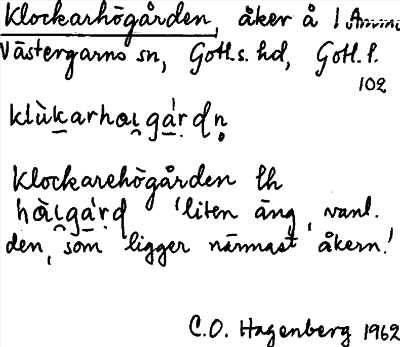 Klockarhögården, åker å 1
Västergarns sn, Gotl.s. hd, Gotl. l.
102
klù̱karhɷɩ̯gá̱ʹṛdn̥
Klockarehögården lh
hɷ̀ɩ̯gá̱ʹṛd 'liten äng, vanl.
den, som ligger närmast åkern.'
C.O. Hagenberg 1962